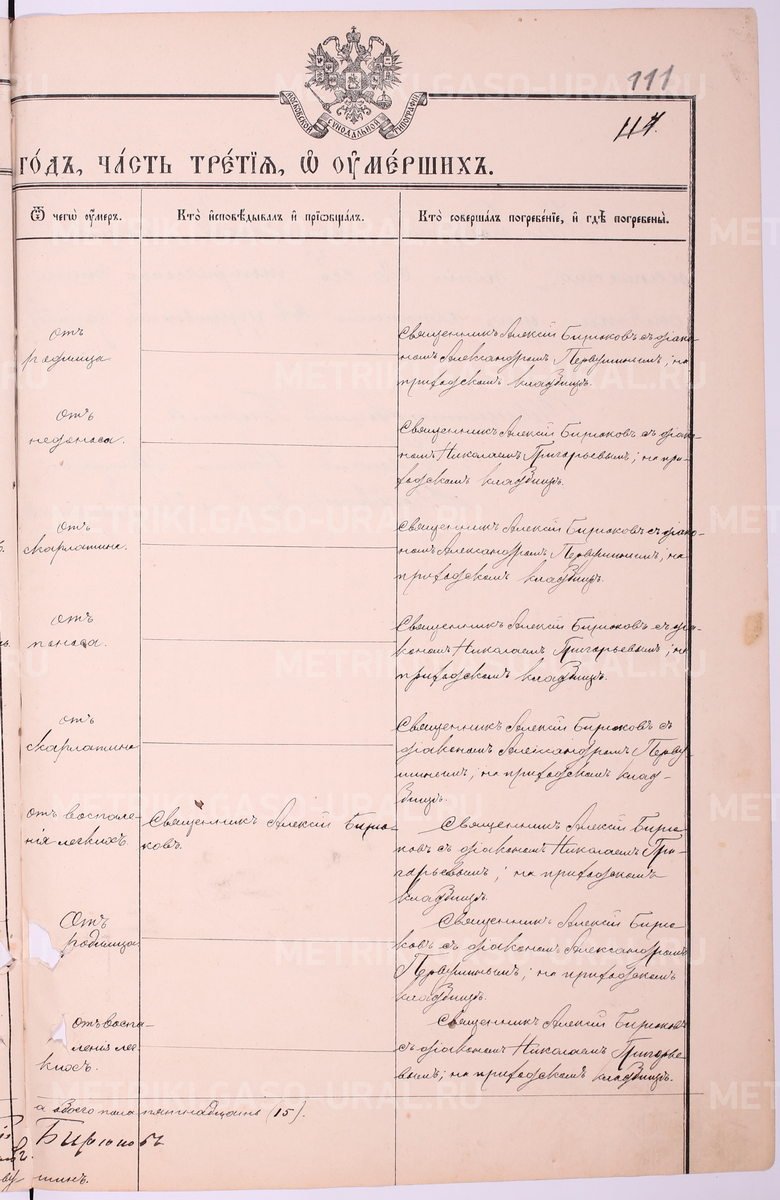 111
117.
МОСКОВСКОЙ СѴНОДАЛЬНОЙ ТИПОГРАФІИ
ГОДЪ, ЧАСТЬ ТРЕТІЯ, Ѿ ОУМЕРШИХЪ.
Ѿ чегѡ оумеръ.
Кто исповѣдывалъ и пріобщалъ.
Кто совершалъ погребеніе, и гдѣ погребены.
отъ
родимца
Священникъ Алексій Бирюковъ съ діако-
номъ Александромъ Первушинымъ; на
приходскомъ кладбищѣ.
отъ
недоноса.
Священникъ Алексій Бирюковъ съ діако-
номъ Николаемъ Григорьевымъ; на при-
ходскомъ кладбищѣ.
отъ
скарлатины.
Священникъ Алексій Бирюковъ съ діако-
номъ Александромъ Первушинымъ, на
приходскомъ кладбищѣ.
отъ
поноса.
Священникъ Алексій Бирюковъ съ діа-
кономъ Николаемъ Григорьевымъ; на
приходскомъ кладбищѣ.
отъ
скарлатины
Священникъ Алексій Бирюковъ съ
діакономъ Александромъ Перву-
шинымъ; на приходскомъ клад-
бищѣ.
отъ воспале-
нія легкихъ.
Священникъ Алексій Бирю-
ковъ.
Священникъ Алексій Бирю-
ковъ съ діакономъ Николаемъ Гри-
горьевымъ; на приходскомъ
кладбищѣ.
Отъ
родимца
Священникъ Алексій Бирю-
ковъ съ діакономъ Александромъ
Первушинымъ; на приходскомъ
кладбищѣ.
отъ воспа-
ленія лег-
кихъ.
Священникъ Алексій Бирюковъ
съ діакономъ Николаемъ Григорье-
вымъ; на приходскомъ кладбищѣ.
а обоего пола пятнадцать (15).
Бирюковъ
шинъ.
METRIKI.GASO-URAL.RU